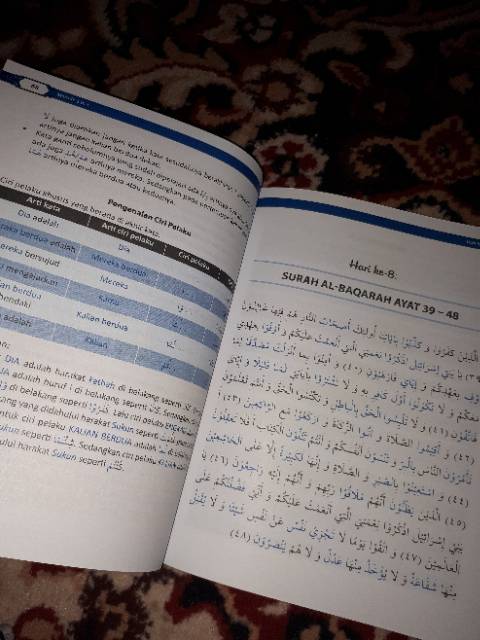 68
لا juga diartikan jangan ketika
artinya jangan kalian berdua dekati.
Kata ganti sebelumnya yang sudah dipelajari ada
ada juga artinya mereka. Sedangkan pada
artinya mereka berdua atau keduanya.
Pengenalan Ciri Pelaku
Ciri pelaku khusus yang berada di akhir kata.
Arti kata Arti ciri pelaku Ciri pelaku
Dia adalah Dia
mereka berdua adalah Mereka berdua
mereka bersujud Mereka
mengajarkan Kamu
kalian berdua Kalian berdua
adalah Kalian
DIA adalah harakat Fathah di belakang seperti
adalah huruf ا di belakang seperti
di belakang seperti
yang didahului harakat Sukun seperti
untuk ciri pelaku KALIAN BERDUA adalah
Sukun seperti Sedangkan ciri pelaku
didahului harakat Sukun seperti كُنْتُمْ
Hari ke-8:
SURAH AL-BAQARAH AYAT 39 – 48
الَّذِيْنَ كَفَرُوْا وَ كَذَّبُوْا بِاٰيَاتِنَا أُولٰئِكَ أَصْحَابُ النَّارِ هُمْ فِيْهَا خَالِدُوْنَ
(٣٩) يَا بَنِيْ إِسْرَائِيْلَ اذْكُرُوْا نِعْمَتِيَ الَّتِيْ أَنْعَمْتُ عَلَيْكُمْ وَ أَوْفُوْا بِعَهْدِيْ
أُوْفِ بِعَهْدِكُمْ وَ إِيَّايَ فَارْهَبُوْنِ (٤٠) وَ اٰمِنُوْا بِمَا أَنْزَلْتُ مُصَدِّقًا لِمَا
مَعَكُمْ وَ لَا تَكُوْنُوْا أَوَّلَ كَافِرٍ بِهِ وَ لَا تَشْتَرُوْا بِاٰيَاتِيْ ثَمَنًا قَلِيْلًا وَ إِيَّايَ
فَاتَّقُوْنِ (٤١) وَ لَا تَلْبِسُوا الْحَقَّ بِالْبَاطِلِ وَ تَكْتُمُوا الْحَقَّ وَ أَنْتُمْ تَعْلَمُوْنَ
(٤٢) وَ أَقِيْمُوا الصَّلَاةَ وَ اٰتُوا الزَّكَاةَ وَ ارْكَعُوْا مَعَ الرَّاكِعِيْنَ (٤٣)
أَتَأْمُرُوْنَ النَّاسَ بِالْبِرِّ وَ تَنْسَوْنَ أَنْفُسَكُمْ وَ أَنْتُمْ تَتْلُوْنَ الْكِتَابَ أَفَلَا تَعْقِلُوْنَ
(٤٤) وَ اسْتَعِيْنُوْا بِالصَّبْرِ وَ الصَّلَاةِ وَ إِنَّهَا لَكَبِيْرَةٌ إِلَّا عَلَى الْخَاشِعِيْنَ
(٤٥) الَّذِيْنَ يَظُنُّوْنَ أَنَّهُمْ مُلَاقُوْا رَبِّهِمْ وَ أَنَّهُمْ إِلَيْهِ رَاجِعُوْنَ (٤٦) يَا
بَنِيْ إِسْرَائِيْلَ اذْكُرُوْا نِعْمَتِيَ الَّتِيْ أَنْعَمْتُ عَلَيْكُمْ وَ أَنِّيْ فَضَّلْتُكُمْ عَلَى
الْعَالَمِيْنَ (٤٧) وَ اتَّقُوْا يَوْمًا لَا تَجْزِيْ نَفْسٌ عَنْ نَفْسٍ شَيْئًا وَ لَا يُقْبَلُ
مِنْهَا شَفَاعَةٌ وَ لَا يُؤْخَذُ مِنْهَا عَدْلٌ وَ لَا هُمْ يُنْصَرُوْنَ (٤٨)